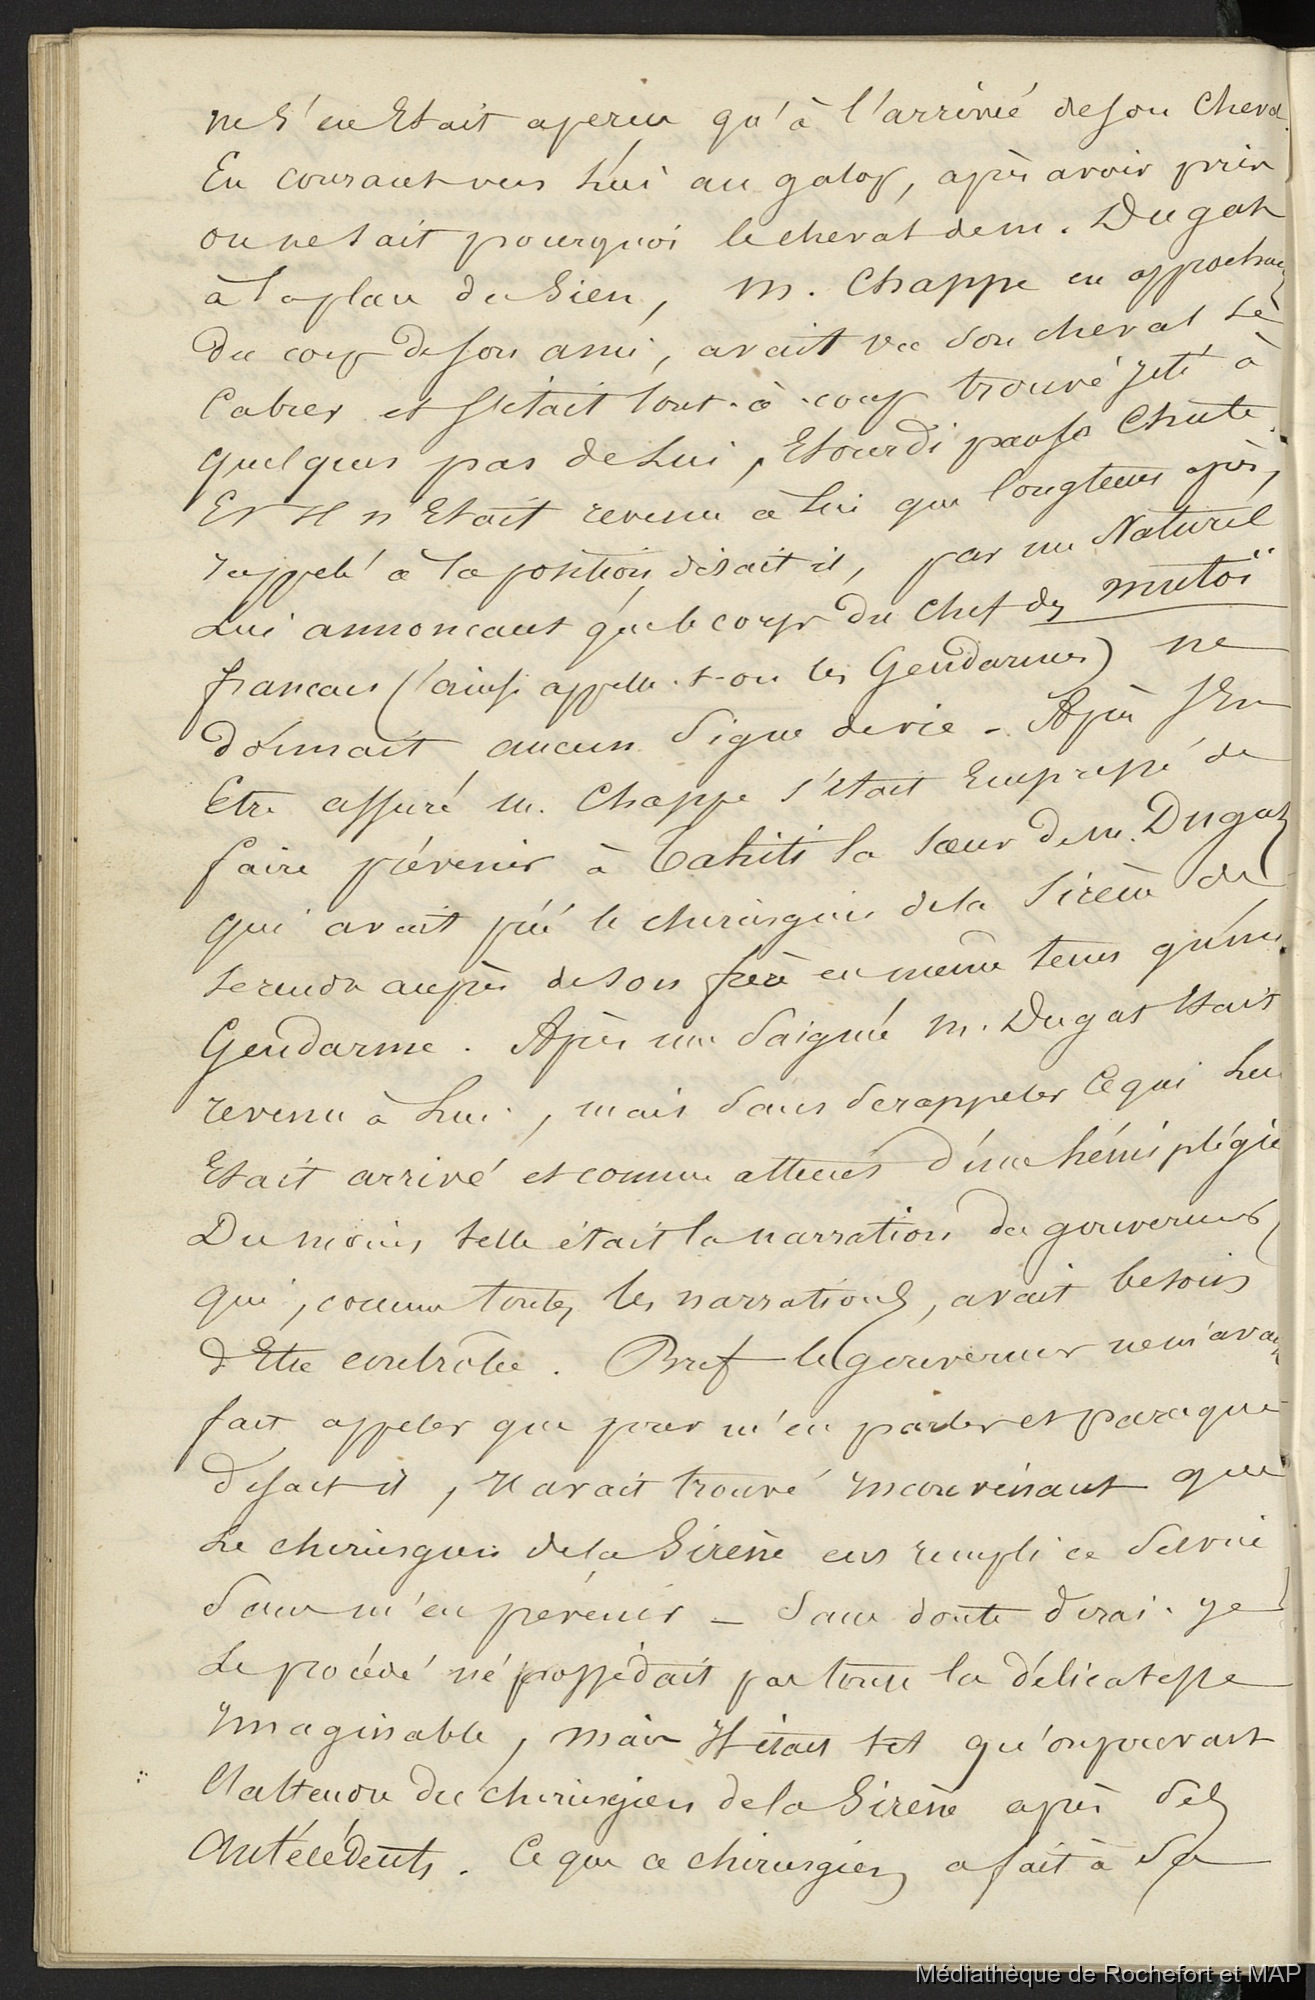 ne s'en Etait aperçu qu'à l'arrivée de son cheval
En courant vers lui au galop, après avoir prin
on ne sait pourquoi le cheval de m. Dugat
à la place du sien, m. Chappe en approchant
du corp de son ami, avait vu son cheval se
Cabrer et s'était tout-à-coup trouvé jeté à
quelques pas de lui, Etourdi par sa Chute.
Et Il n'Etait revenu à lui que longtems après,
rappelé à la position disait il, par un Naturel
Lui annoncant que le corps du Chef des mutoï
francais (c'ainsi appelle-t-on les Gendarmes) ne
donnait aucun signe de vie - Après s'En
Etre assuré m. Chappe s'était Empressé de
faire prévenir à Tahiti la sœur de m. Dugat
qui avait prié le chirurgien de la Sirène de
se rendre auprès de son frère en même tems qu'un
Gendarme. Après une saignée m. Dugat Etait
revenu à lui, mais sans se rappeler ce qui lui
Etait arrivé et comme atteint d'une hémiplégie
Du moins telle était la narration du gouverneur
qui, comme toutes les narrations, avait besoin
d'Etre contrôlée. Bref le gouverneur ne m'avait
fait appeler que pour m'en parler et parceque
disait-il, Il avait trouvé Inconvenant que
Le chirurgien de la Sirène eut rempli ce service
sans m'en prévenir - sans doute dirai-je
Le procédé ne possédait pas toute la délicatesse
Imaginable, mais Il était tel qu'on pouvait
l'attendre du chirurgien de la Sirène après ses
Antécédents. Ce que ce chirurgien a fait à sa
Médiathèque de Rochefort et MAP